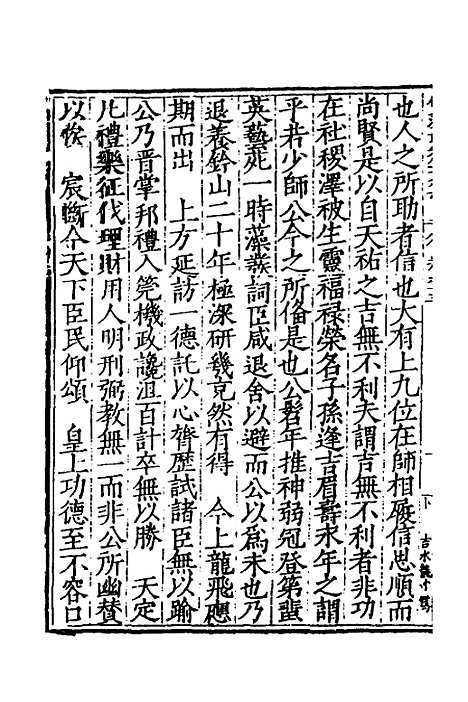 也人之所助者信也大有上九位在師相履信思順而
尚賢是以自天祐之吉無不利夫謂吉無不利者非功
在社稷澤被生靈福祿榮名子孫逢吉眉壽永年之謂
乎若少師公今之所備是也公髫年推神弱冠登第蜚
英藝苑一時藻裁詞臣咸退舍以避而公以為未也乃
退養鈐山二十年極深研幾充然有得　今上龍飛應
期而出　上方延訪一德託以心膂歷試諸臣無以踰
公乃晉掌邦禮入筦機政讒沮百計卒無以勝　天定
凡禮樂征伐理財用人明刑弼教無一而非公所幽贊
以悏　宸斷今天下臣民仰頌　皇上功德至不容口
下
吉水